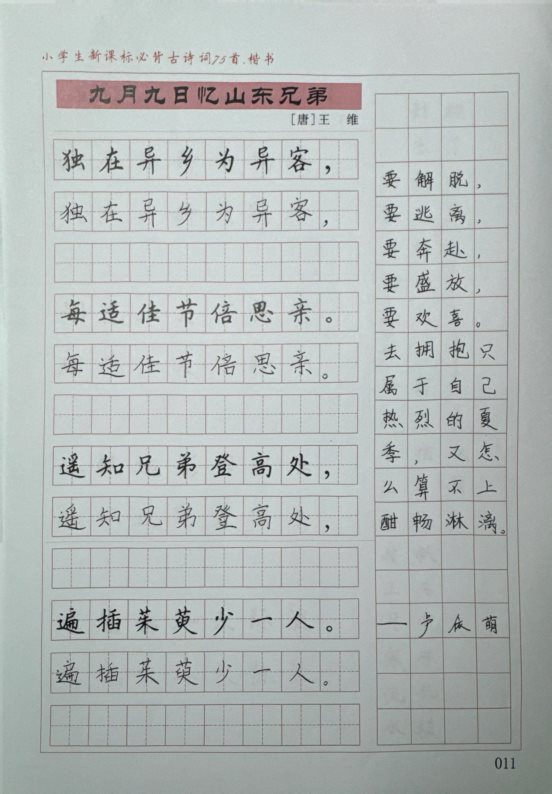 小学生新课标必背古诗词75首.楷书
九月九日忆山东兄弟
[唐]王 维
独在异乡为异客，
独在异乡为异客，
每适佳节倍思亲。
每适佳节倍思亲。
遥知兄弟登高处，
遥知兄弟登高处，
遍插茱萸少一人。
遍插茱萸少一人。
要解脱，
要逃离，
要奔赴，
要盛放，
要欢喜。
去拥抱只
属于自己
热烈的夏
季，又怎
么算不上
酣畅淋漓。
——卢瓜萌
011